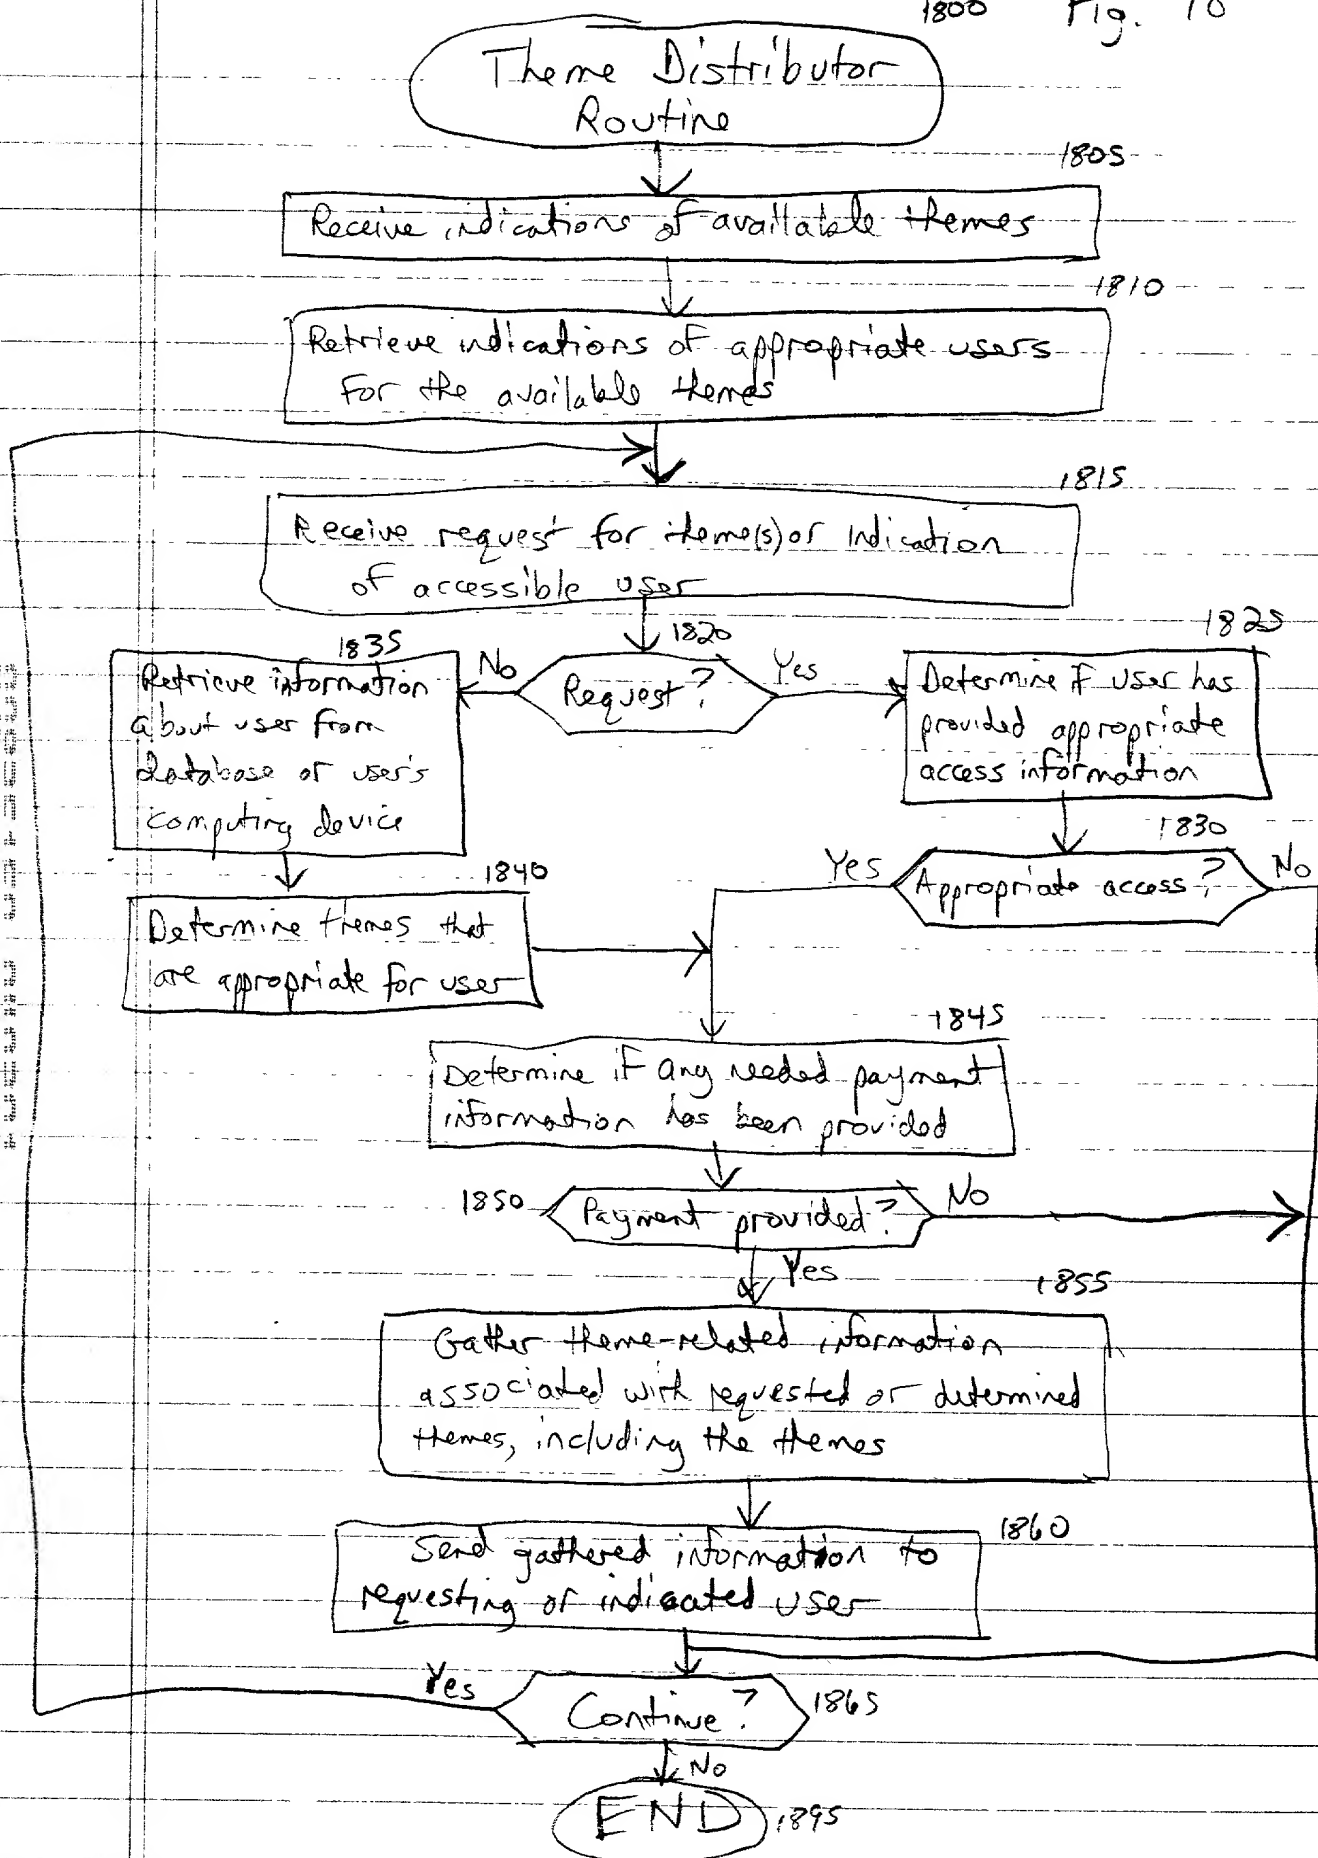 1800 Fig. 18
Theme Distributor
Routine
1805
Receive indications of available themes
1810
Retrieve indications of appropriate users
for the available themes
1815
Receive request for theme(s) or Indication
of accessible user
1820
Request?
No
Yes
1835
Retrieve information
about user from
database or user's
computing device
1825
Determine if user has
provided appropriate
access information
1830
Appropriate access?
Yes
No
1840
Determine themes that
are appropriate for user
1845
Determine if any needed payment
information has been provided
1850
Payment provided?
No
Yes
1855
Gather theme-related information
associated with requested or determined
themes, including the themes
1860
Send gathered information to
requesting or indicated user
Yes
Continue?
1865
No
END
1895